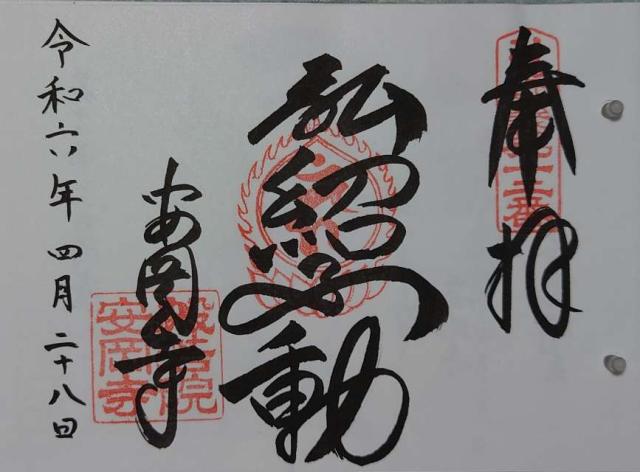 奉拝
弘紹不動
安岡寺
般若院
安岡寺
令和六年四月二十八日